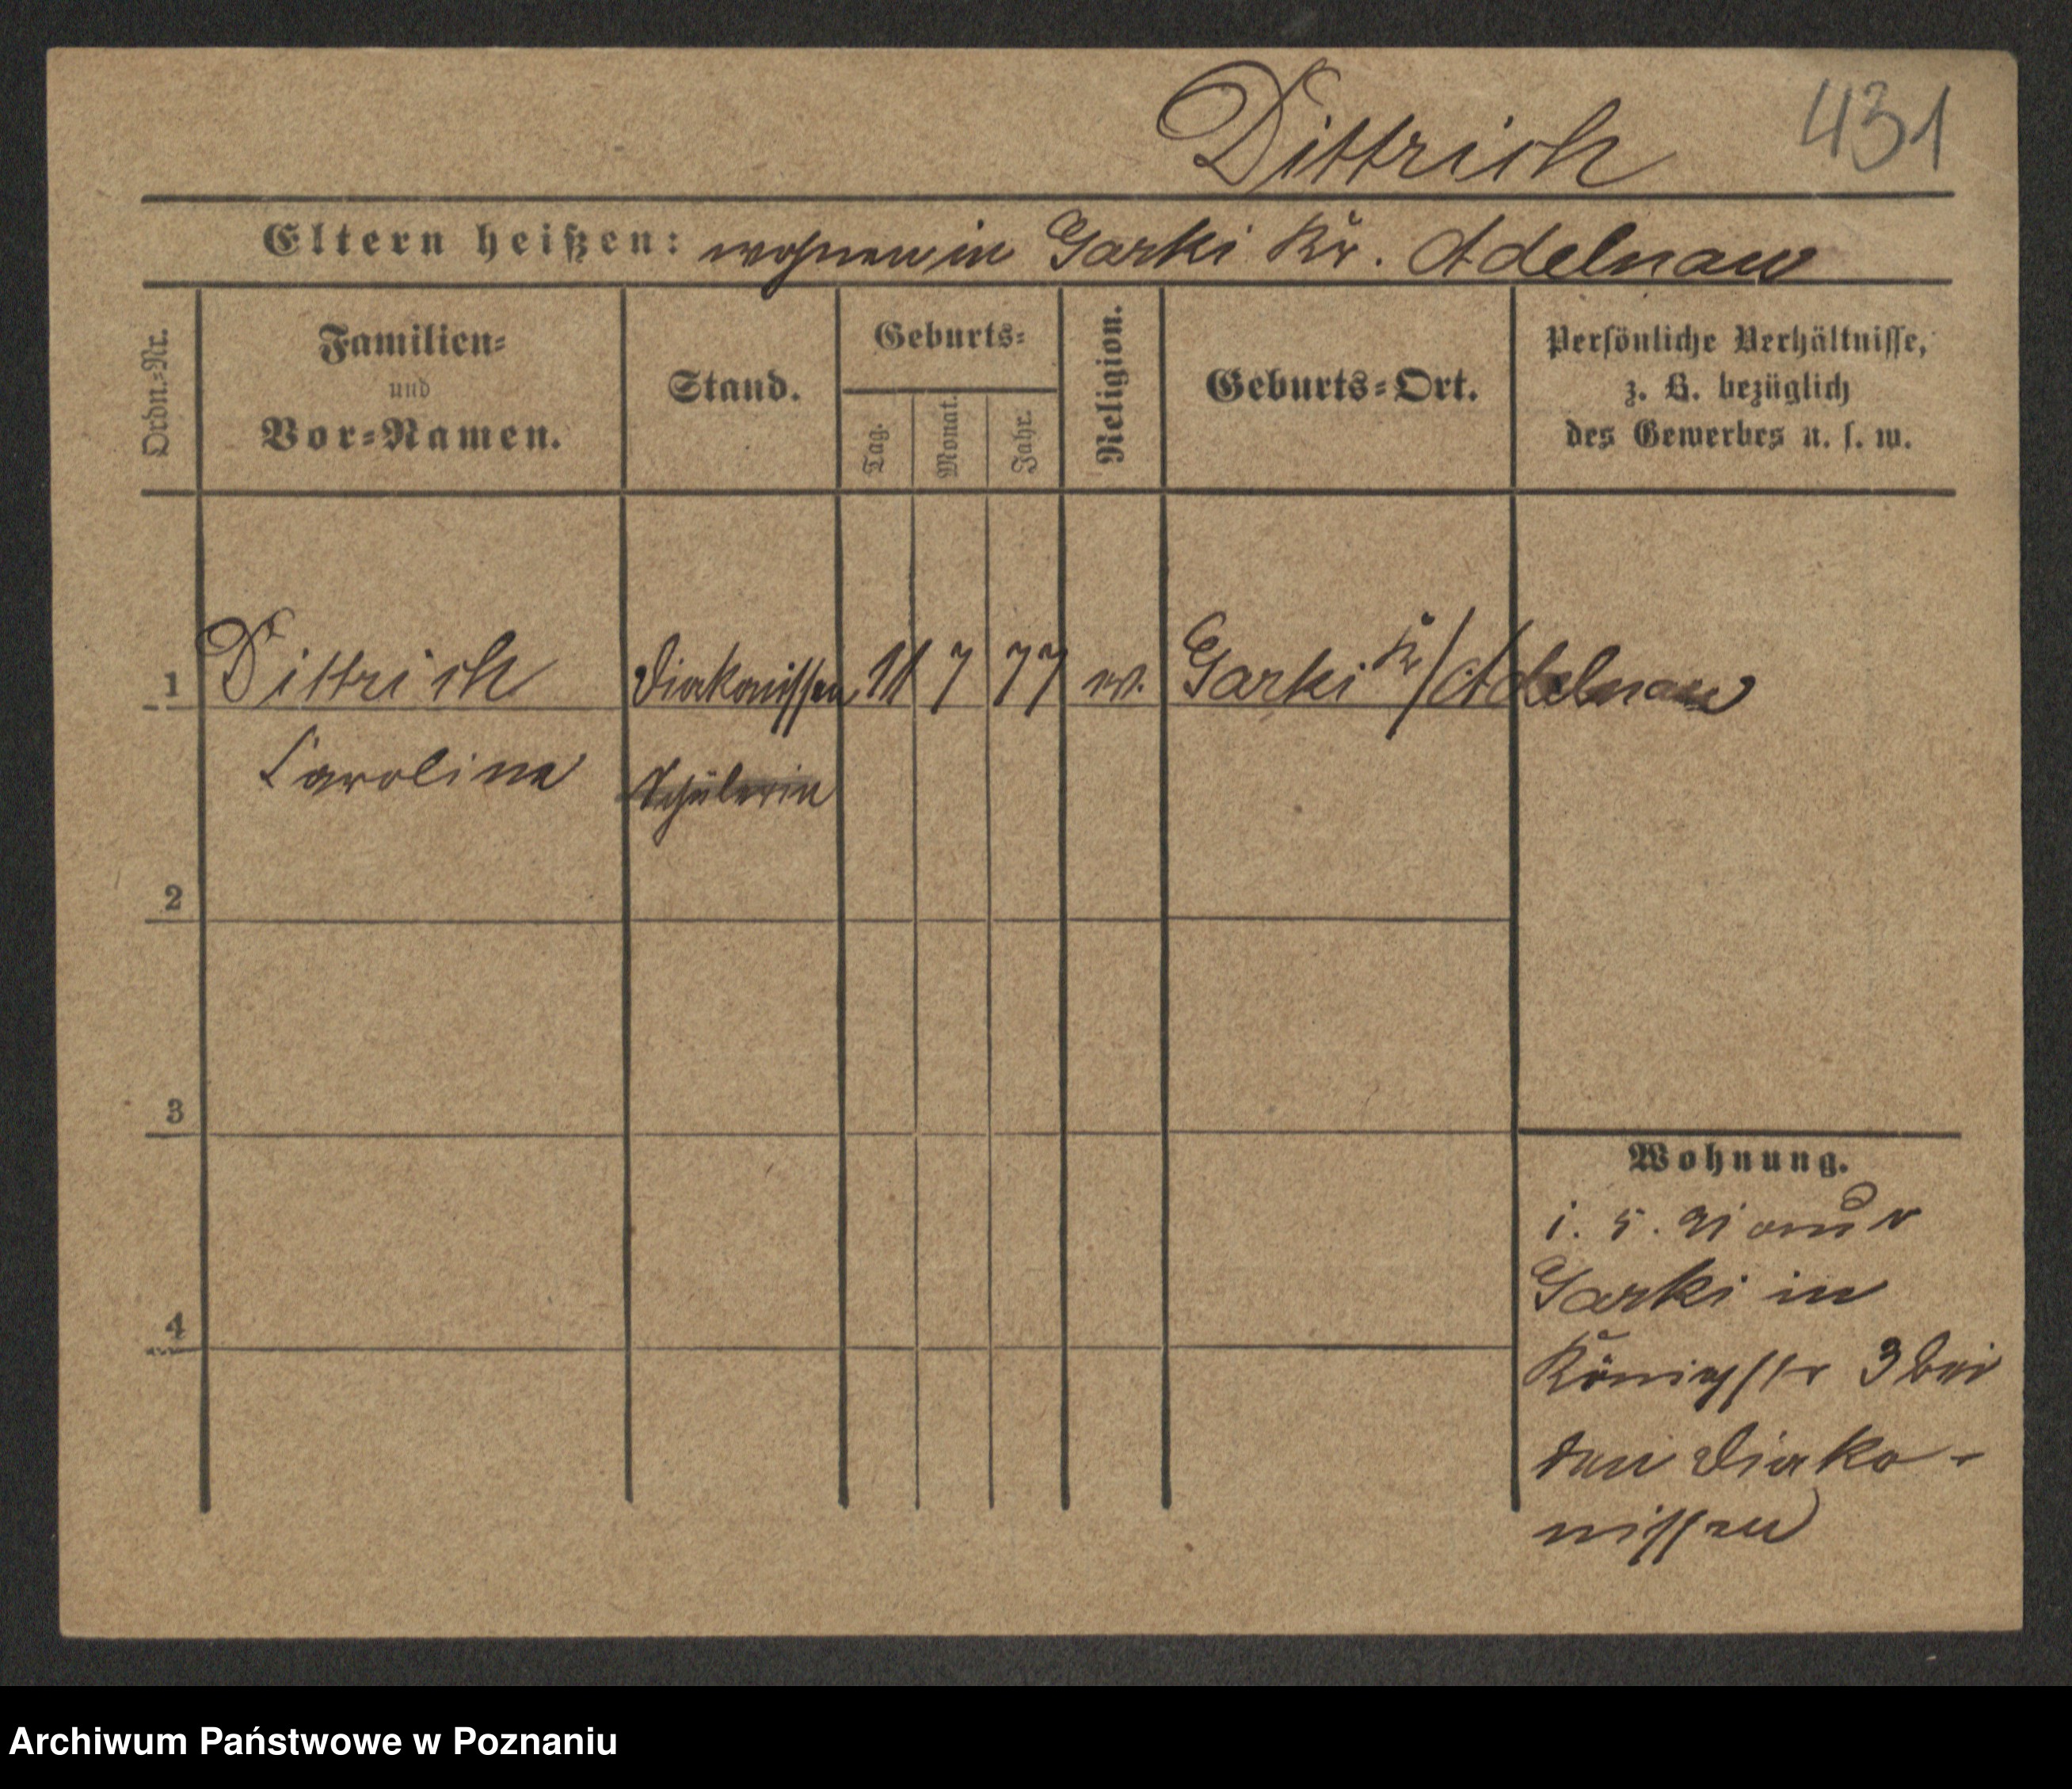 Dittrich 431
Eltern heißen: wohnen in Garki Kr. Adelnau
Ordn.-Nr.
Familien-
und
Vor-Namen.
Stand.
Geburts-
Tag.
Monat.
Jahr.
Religion.
Geburts-Ort.
Persönliche Verhältnisse,
z. B. bezüglich
des Gewerbes u. s. w.
1 Dittrich Diakonissen 11 7 77 ev. Garki Kr/Adelnau
Caroline Schülerin
2
3
4
Wohnung.
Garki in
Königstr 3 bei
den Diako-
nissen
Archiwum Państwowe w Poznaniu